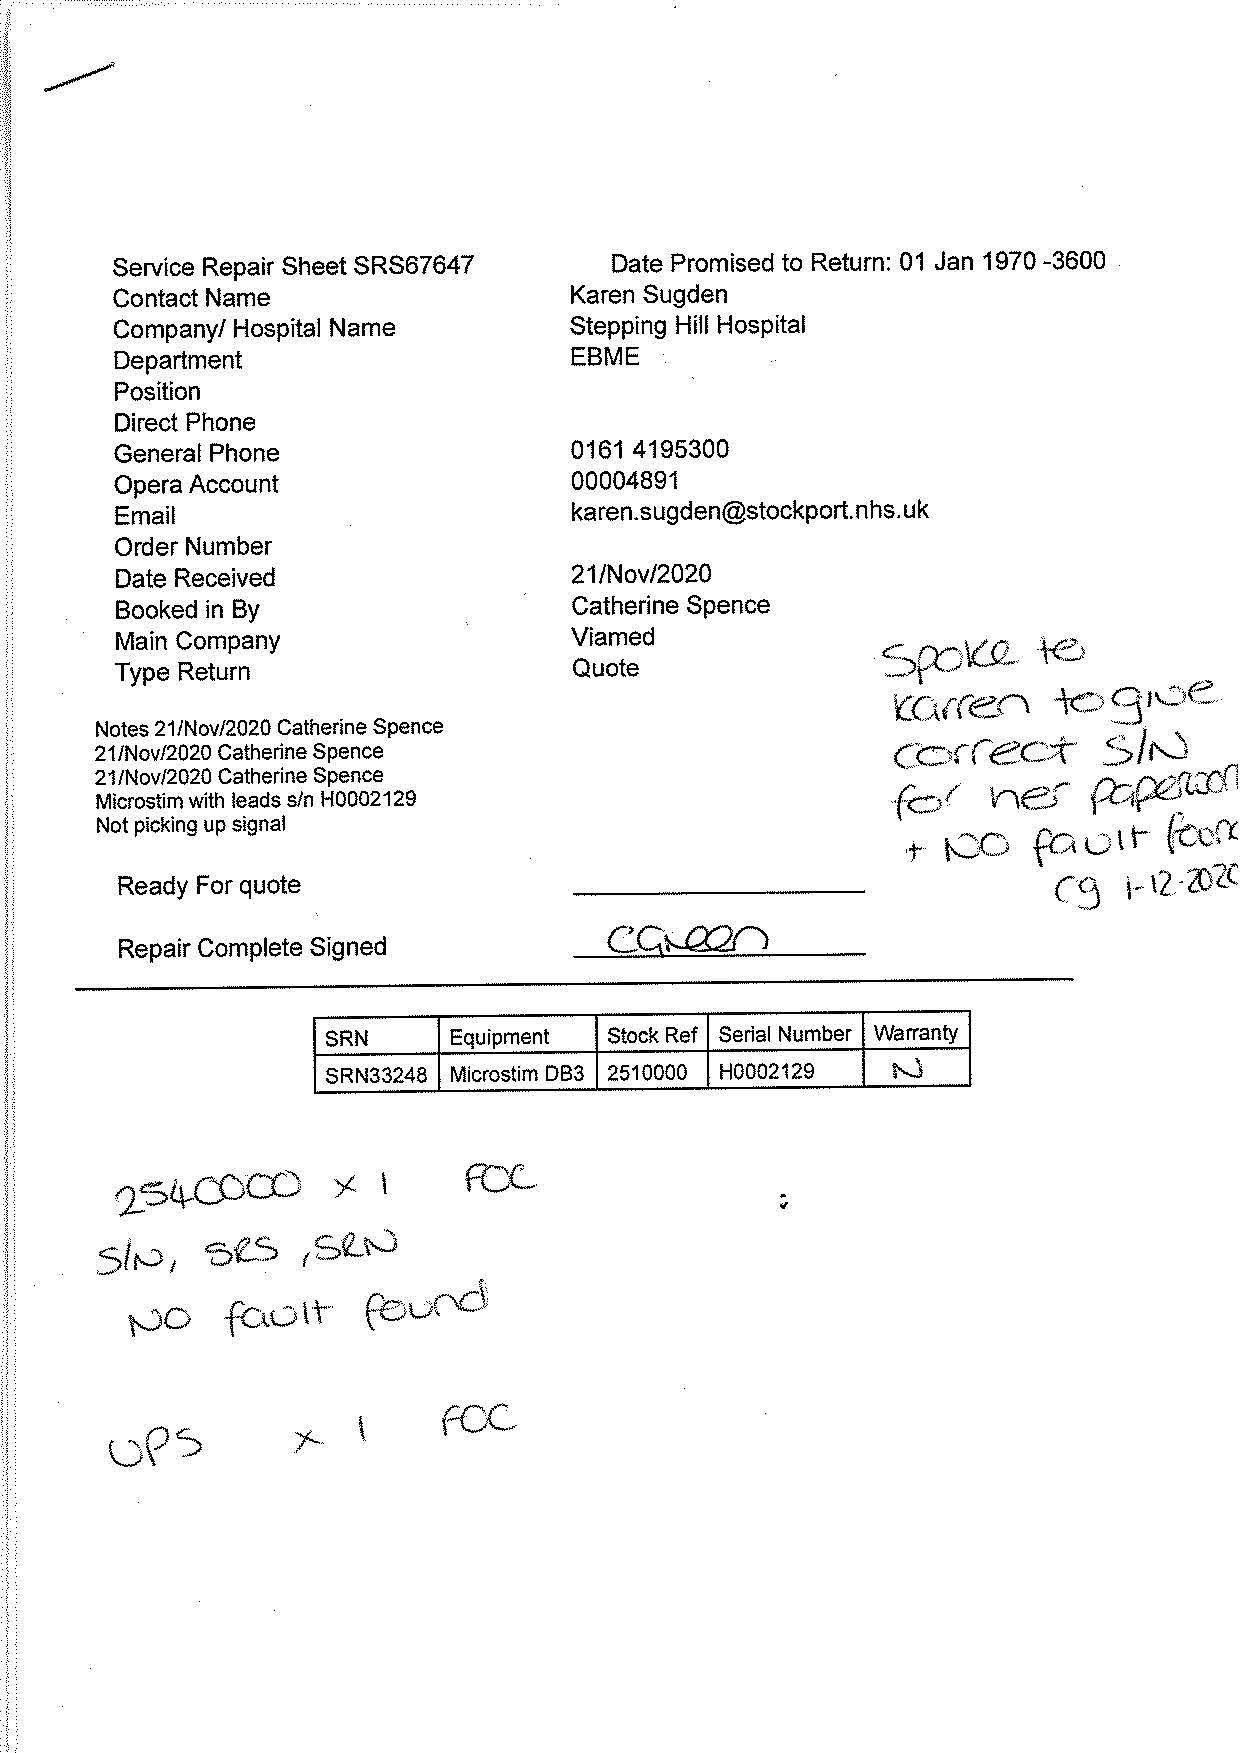 Service Repair Sheet SRS67647 Date Promised to Return: 01 Jan 1970 -3600
Contact Name Karen Sugden
Company/ Hospital Name Stepping Hill Hospital
Department EBME
Position
Direct Phone
General Phone 0161 4195300
Opera Account 00004891
Email karen.sugden@stockport.nhs.uk
Order Number
Date Received 21/Nov/2020
Booked in By Catherine Spence
Main Company Viamed
Type Return Quote
Spoke to
karren to give
correct S/N
for her paperwor
+ NO fault foun
cg 1-12-2020
Notes 21/Nov/2020 Catherine Spence
21/Nov/2020 Catherine Spence
21/Nov/2020 Catherine Spence
Microstim with leads s/n H0002129
Not picking up signal
Ready For quote
Repair Complete Signed CGreen
SRN Equipment Stock Ref Serial Number Warranty
SRN33248 Microstim DB3 2510000 H0002129 N
2540000 x 1 FOC
S/N, SRS, SRN
NO fault found
UPS x 1 FOC